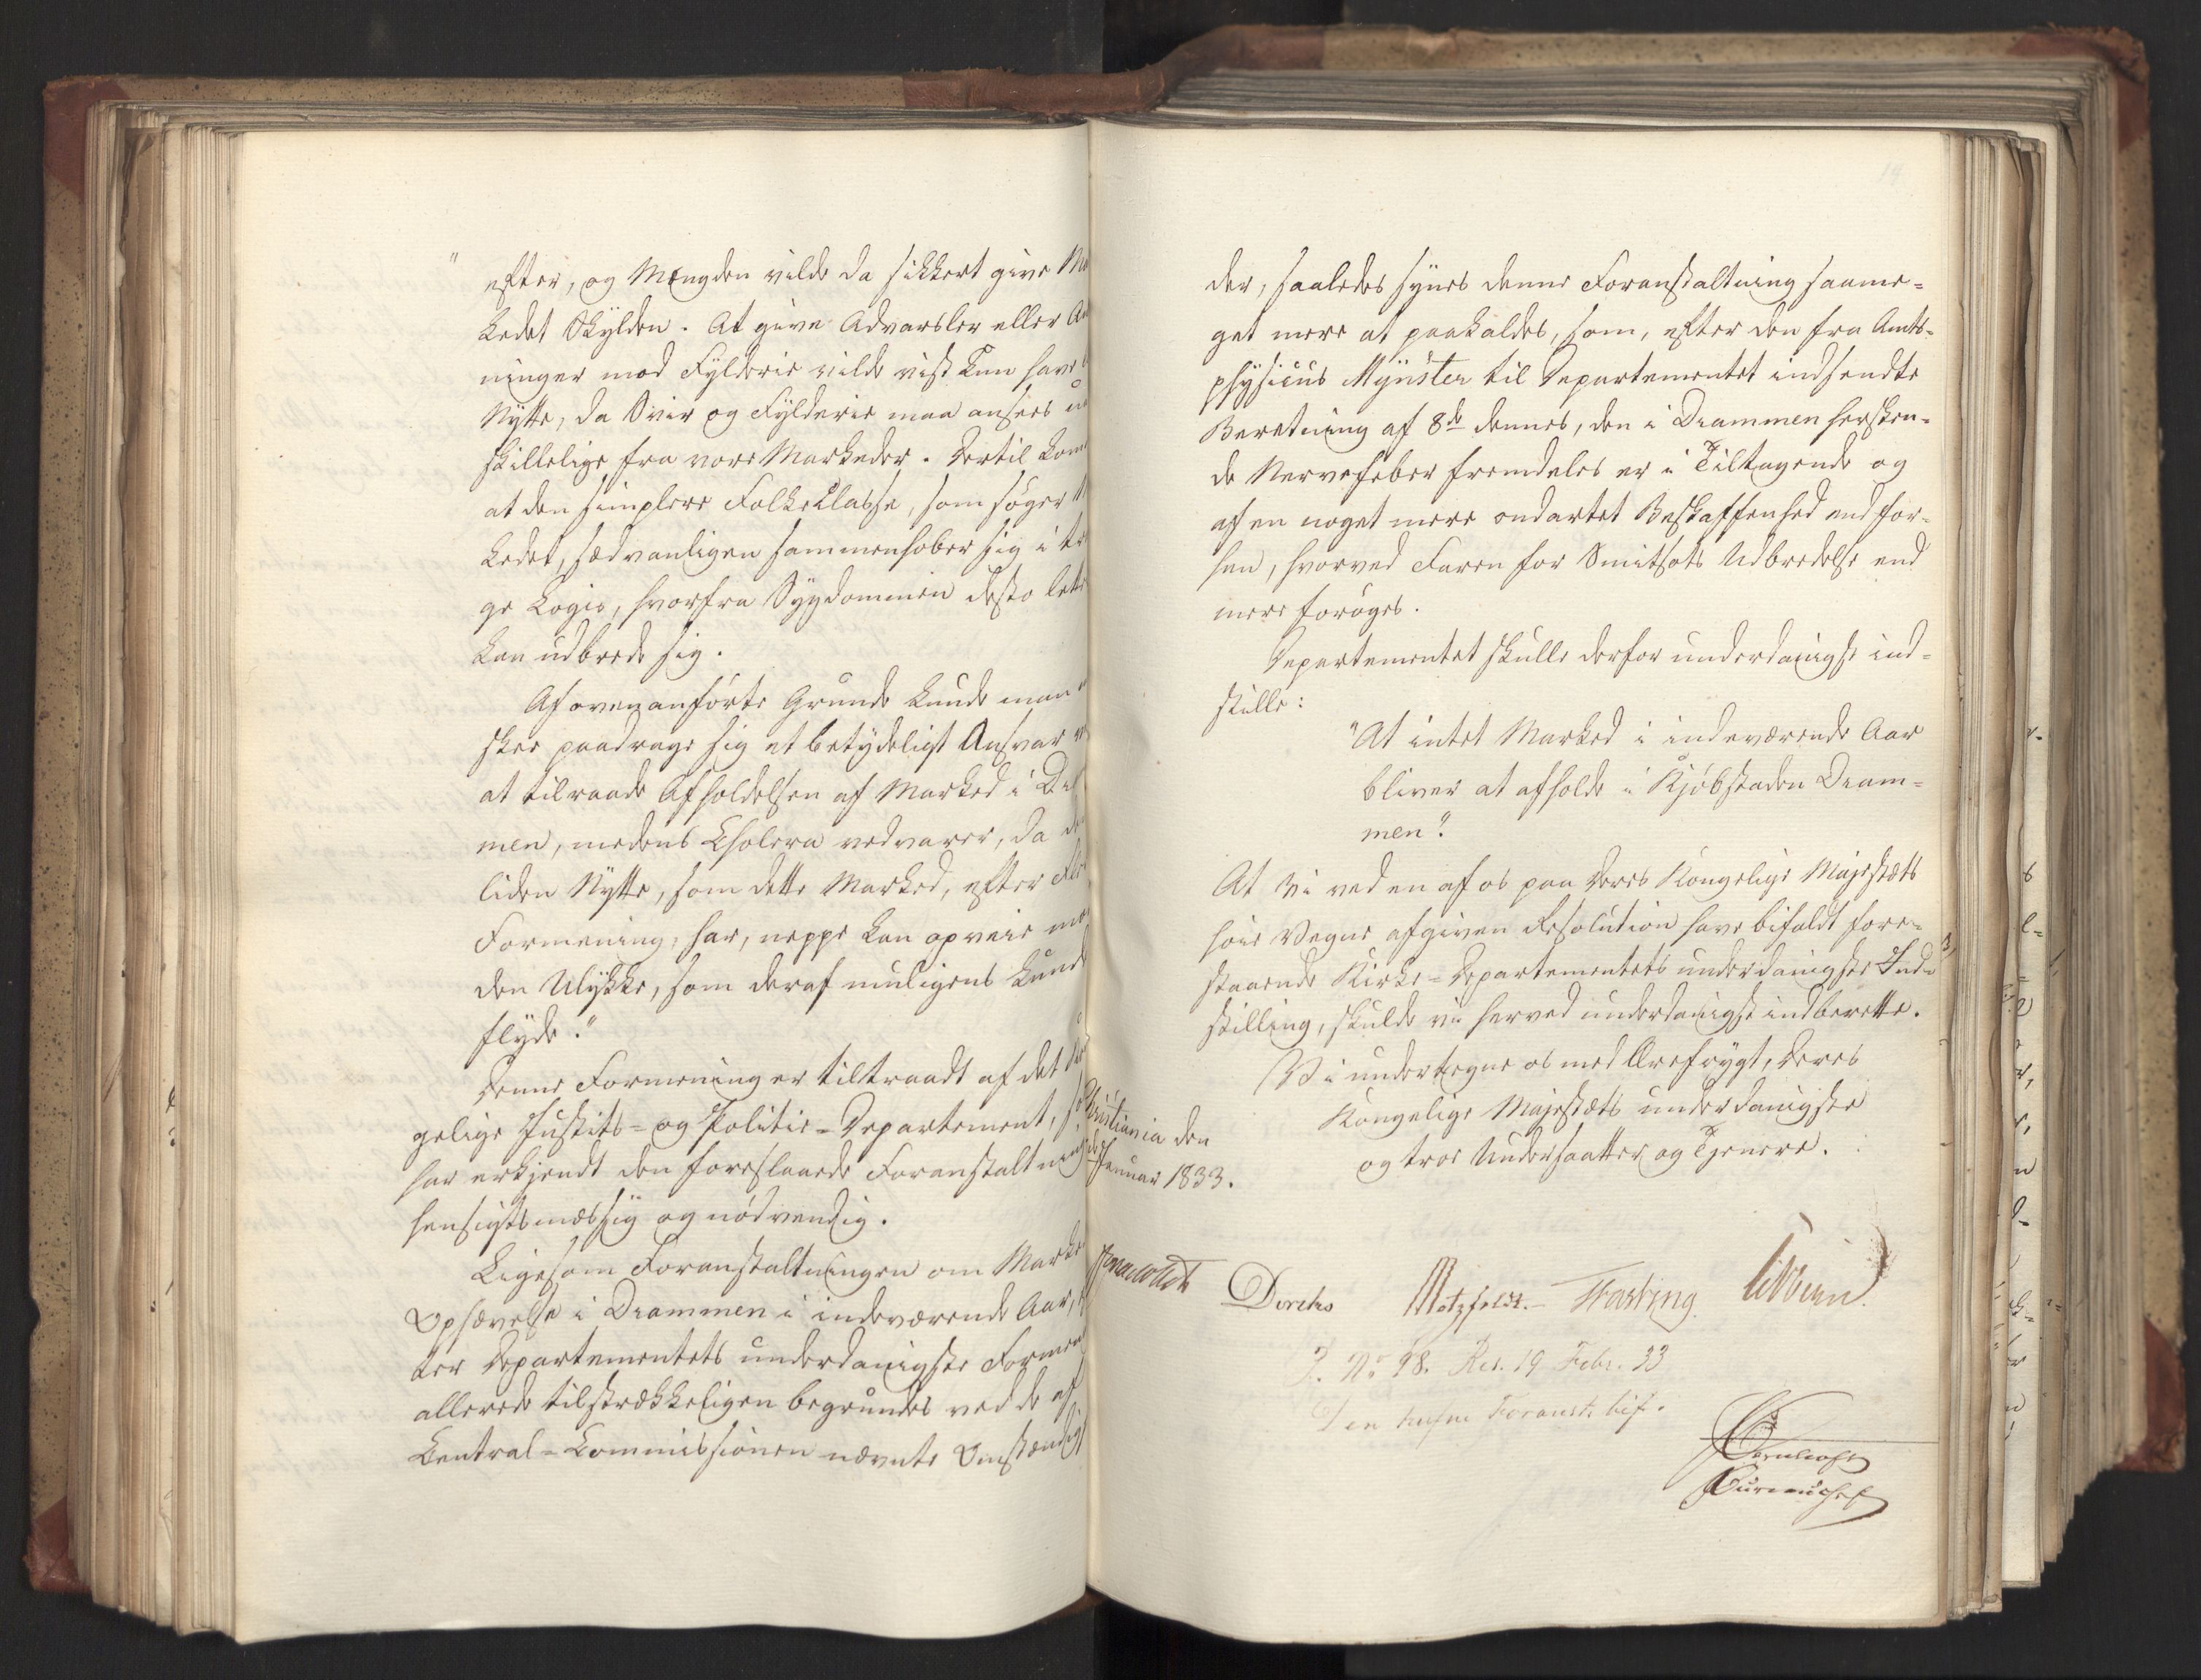 " efter, og Mængden vilde da sikkert give Ma
kedet Skylden. At give Advarsler eller An
ninger mod Fylderie vilde vist kun have
Nytte, da Sviir og Fylderie maa ansees u
skillelige fra vore Markeder. Dertil kom
at den simplere Folkeclasse, som søger M
kedet, sædvanligen sammenhober sig i tr
ge Logis, hvorfra Sygdommen desto lette
kan udbrede sig.
Af ovenanførte Grunde kunde man
skee paadrage sig et betydeligt Ansvar v
at tilraade Afholdelsen af Marked i Dra
men, medens Cholera vedvarer, da de
liden Nytte, som dette Marked, efter Fl
Formening, har, neppe kan opveie
den Ulykke, som deraf muligens kunde
flyde."
Denne Formening er tiltraadt af det
gelige Justits- og Politie-Departement, so
har erkjendt den foreslaaede Foranstaltning
hensigtsmæssig og nødvendig.
Ligesom Foranstaltningen om Marke
Ophævelse i Drammen i indeværende Aar,
ter Departementets underdanigste Formen
allerede tilstrækkeligen begrundes ved de af
Central-Commissionen nævnte Omstændig
der, saaledes synes denne Foranstaltning saame-
get mere at paakaldes, som, efter den fra Amts-
physicus Mynster til Departementet indsendte
Beretning af 8de dennes, den i Drammen hersken-
de Nervefeber fremdeles er i Tiltagende og
af en noget mere ondartet Beskaffenhed end for-
hen, hvorved Faren for Smitsots Udbredelse end
mere forøges.
Departementet skulle derfor underdanigst ind-
stille:
"At intet Marked i indeværende Aar
bliver at afholde i Kjøbstaden Dram-
men".
At vi ved en af os paa Deres Kongelige Majestæts
høie Vegne afgiven Resolution have bifaldt fore-
staaende Kirke-Departementets underdanigste Ind-
stilling, skulde vi herved underdanigst indberette.
Vi undertegne os med Ærefrygt, Deres
Kongelige Majestæts underdanigste
og troe Undersaatter og Tjenere.
Christiania den
Januar 1833.
Diriks Motzfeldt. Fasting
J. No 98. Res. 19 Febr. 33
Den trufne Foranst. bif.
Bureauchef